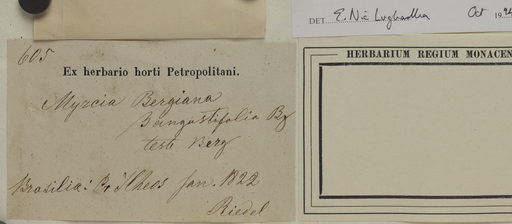 DET. E. Nic Lughadha Oct 19
605
HERBARIUM REGIUM MONACEN
Ex herbario horti Petropolitani.
Myrcia Bergiana
β angustifolia Bg
teste Berg
Brasilia: Pr. Ilheos Jan. 1822
Riedel